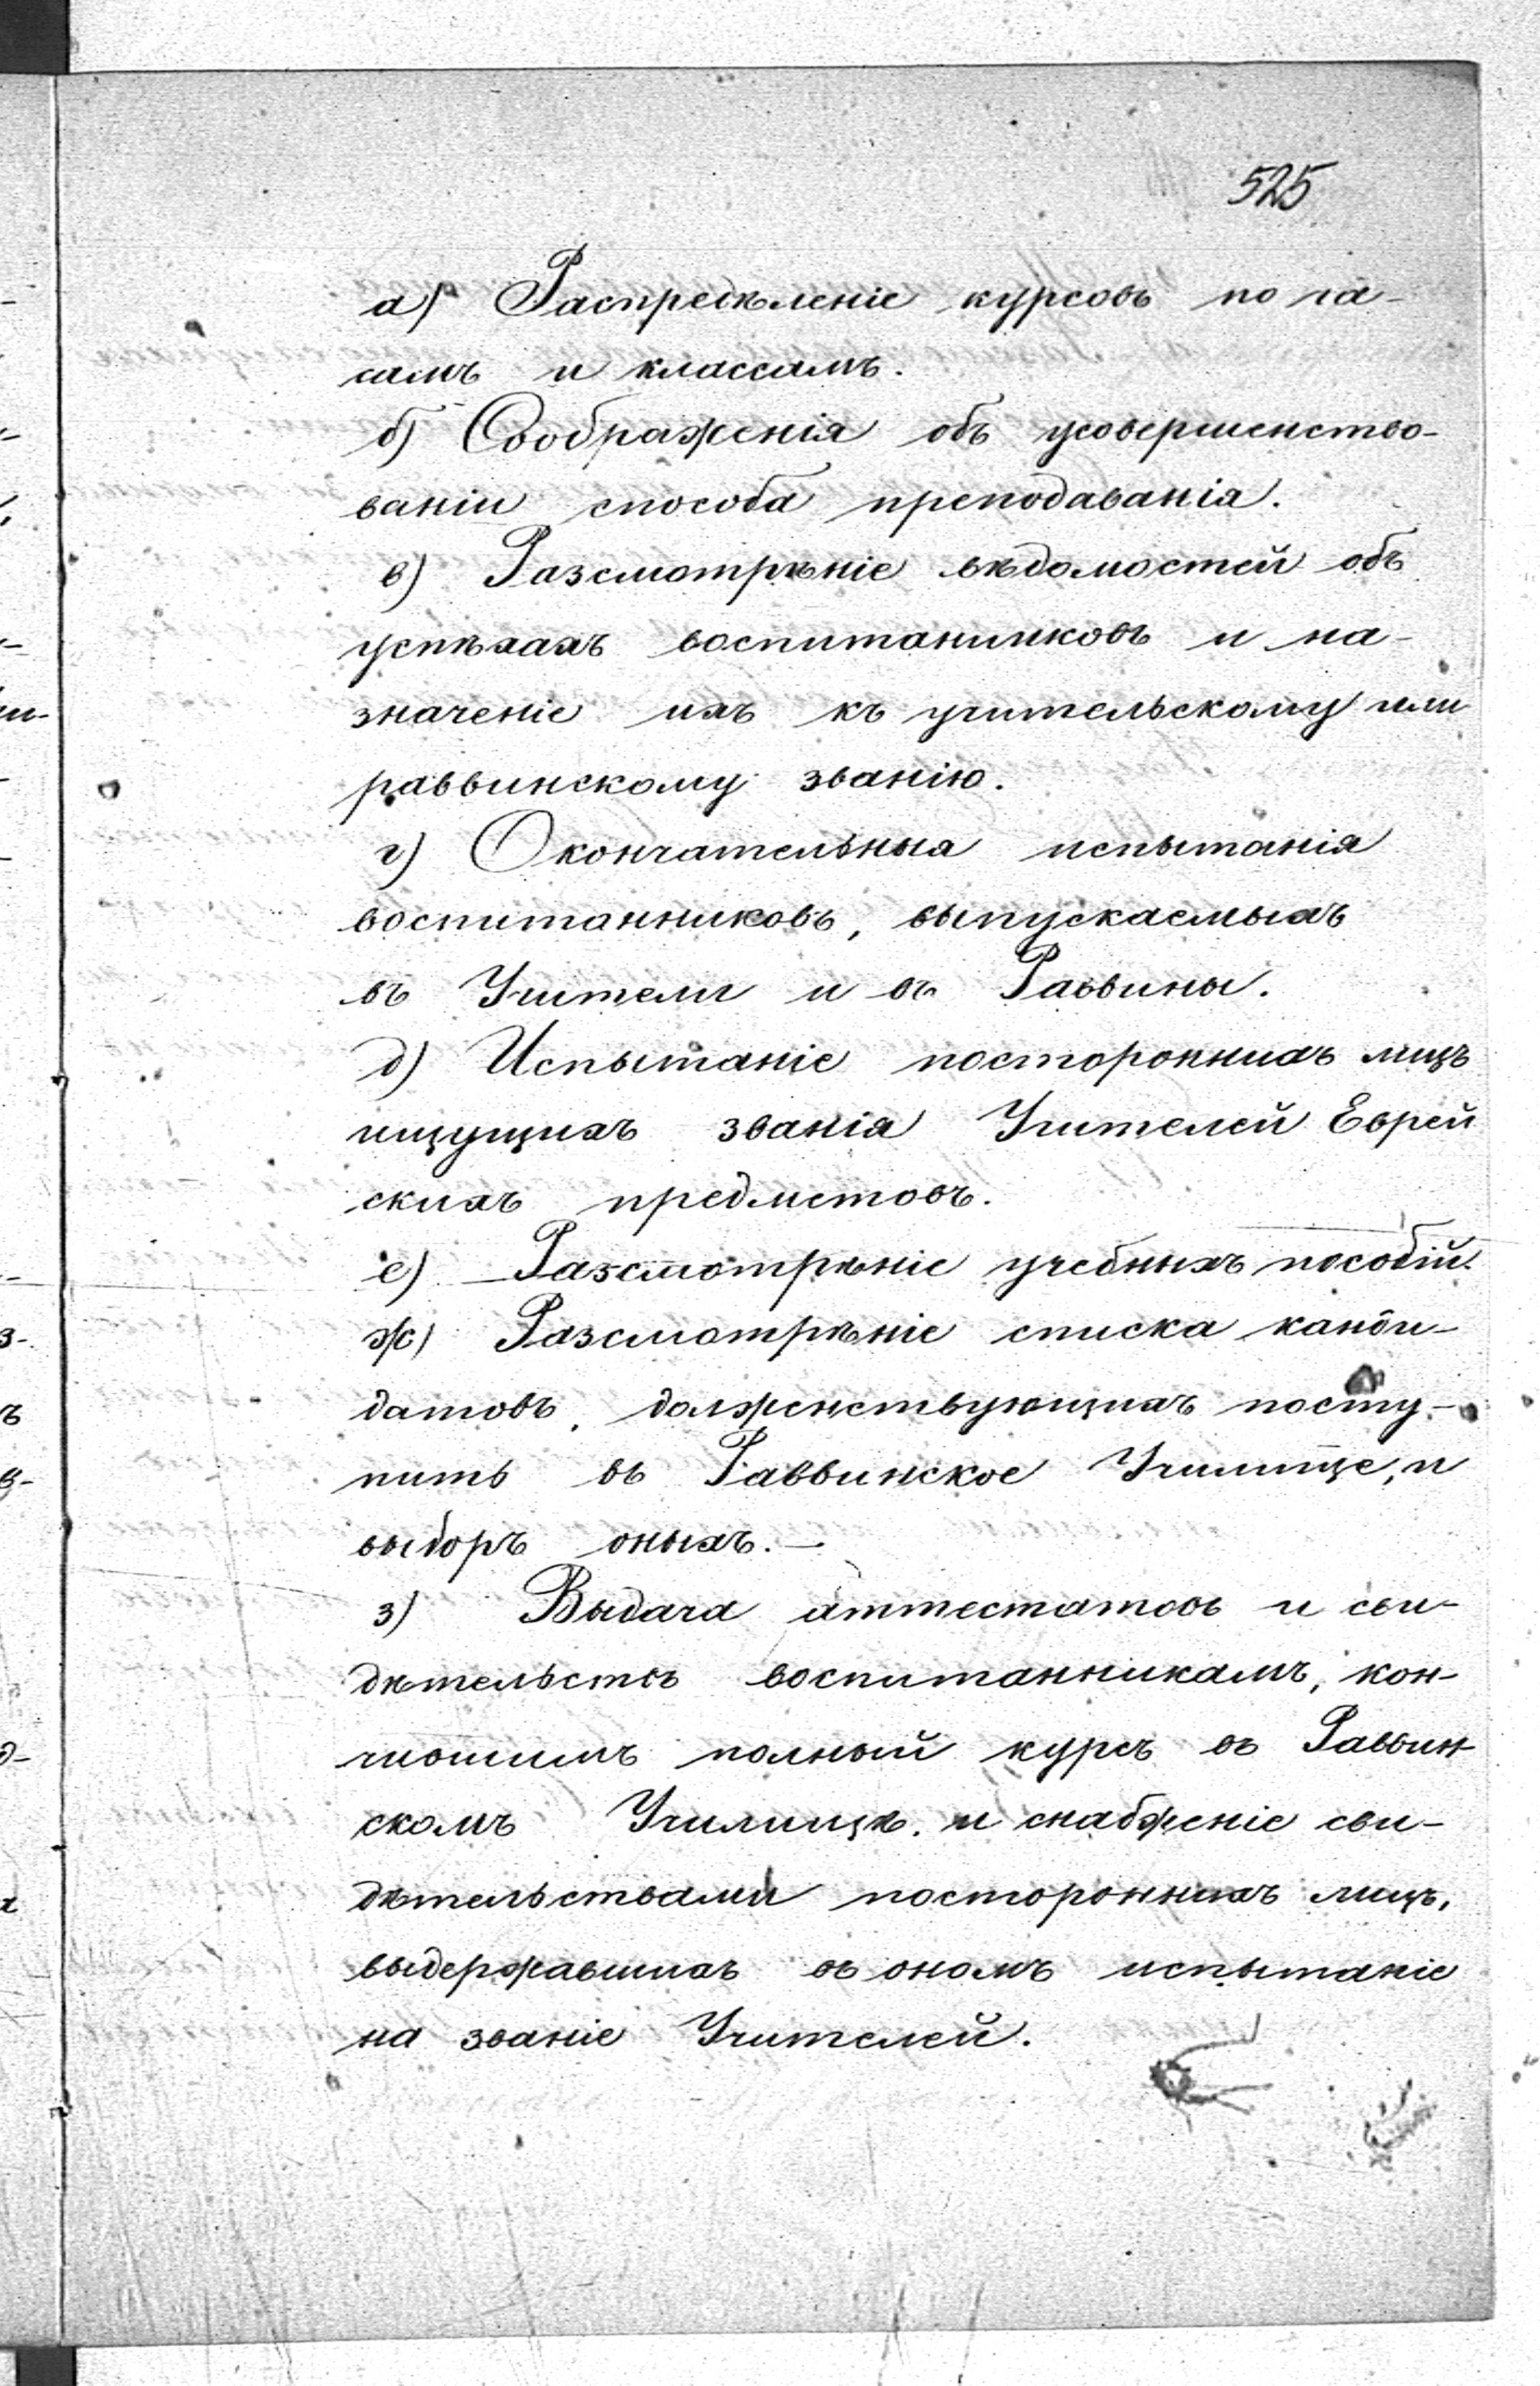 525
а) Распредѣленіе курсовъ по ча-
самъ и классамъ.
б) Соображенія объ усовершенство-
ваніи способа преподаванія.
в) Разсмотрѣніе вѣдомостей объ
успѣхахъ воспитанниковъ и на-
значеніе ихъ къ учительскому или
раввинскому званію.
г) Окончательныя испытанія
воспитанниковъ, выпускаемыхъ
въ Учители и въ Раввины.
д) Испытаніе постороннихъ лицъ
ищущихъ званія Учителей Еврей
скихъ предметовъ.
е) Разсмотрѣніе учебныхъ пособій.
ж) Разсмотрѣніе списка канди-
датовъ, долженствующихъ посту-
пить въ Раввинское Училище, и
выборъ оныхъ.—
з) Выдача аттестатовъ и сви-
дѣтельствъ воспитанникамъ, кон-
чившимъ полный курсъ въ Раввин-
скомъ Училищѣ. и снабженіе сви-
дѣтельствами постороннихъ лицъ,
выдержавшихъ въ ономъ испытаніе
на званіе Учителей.